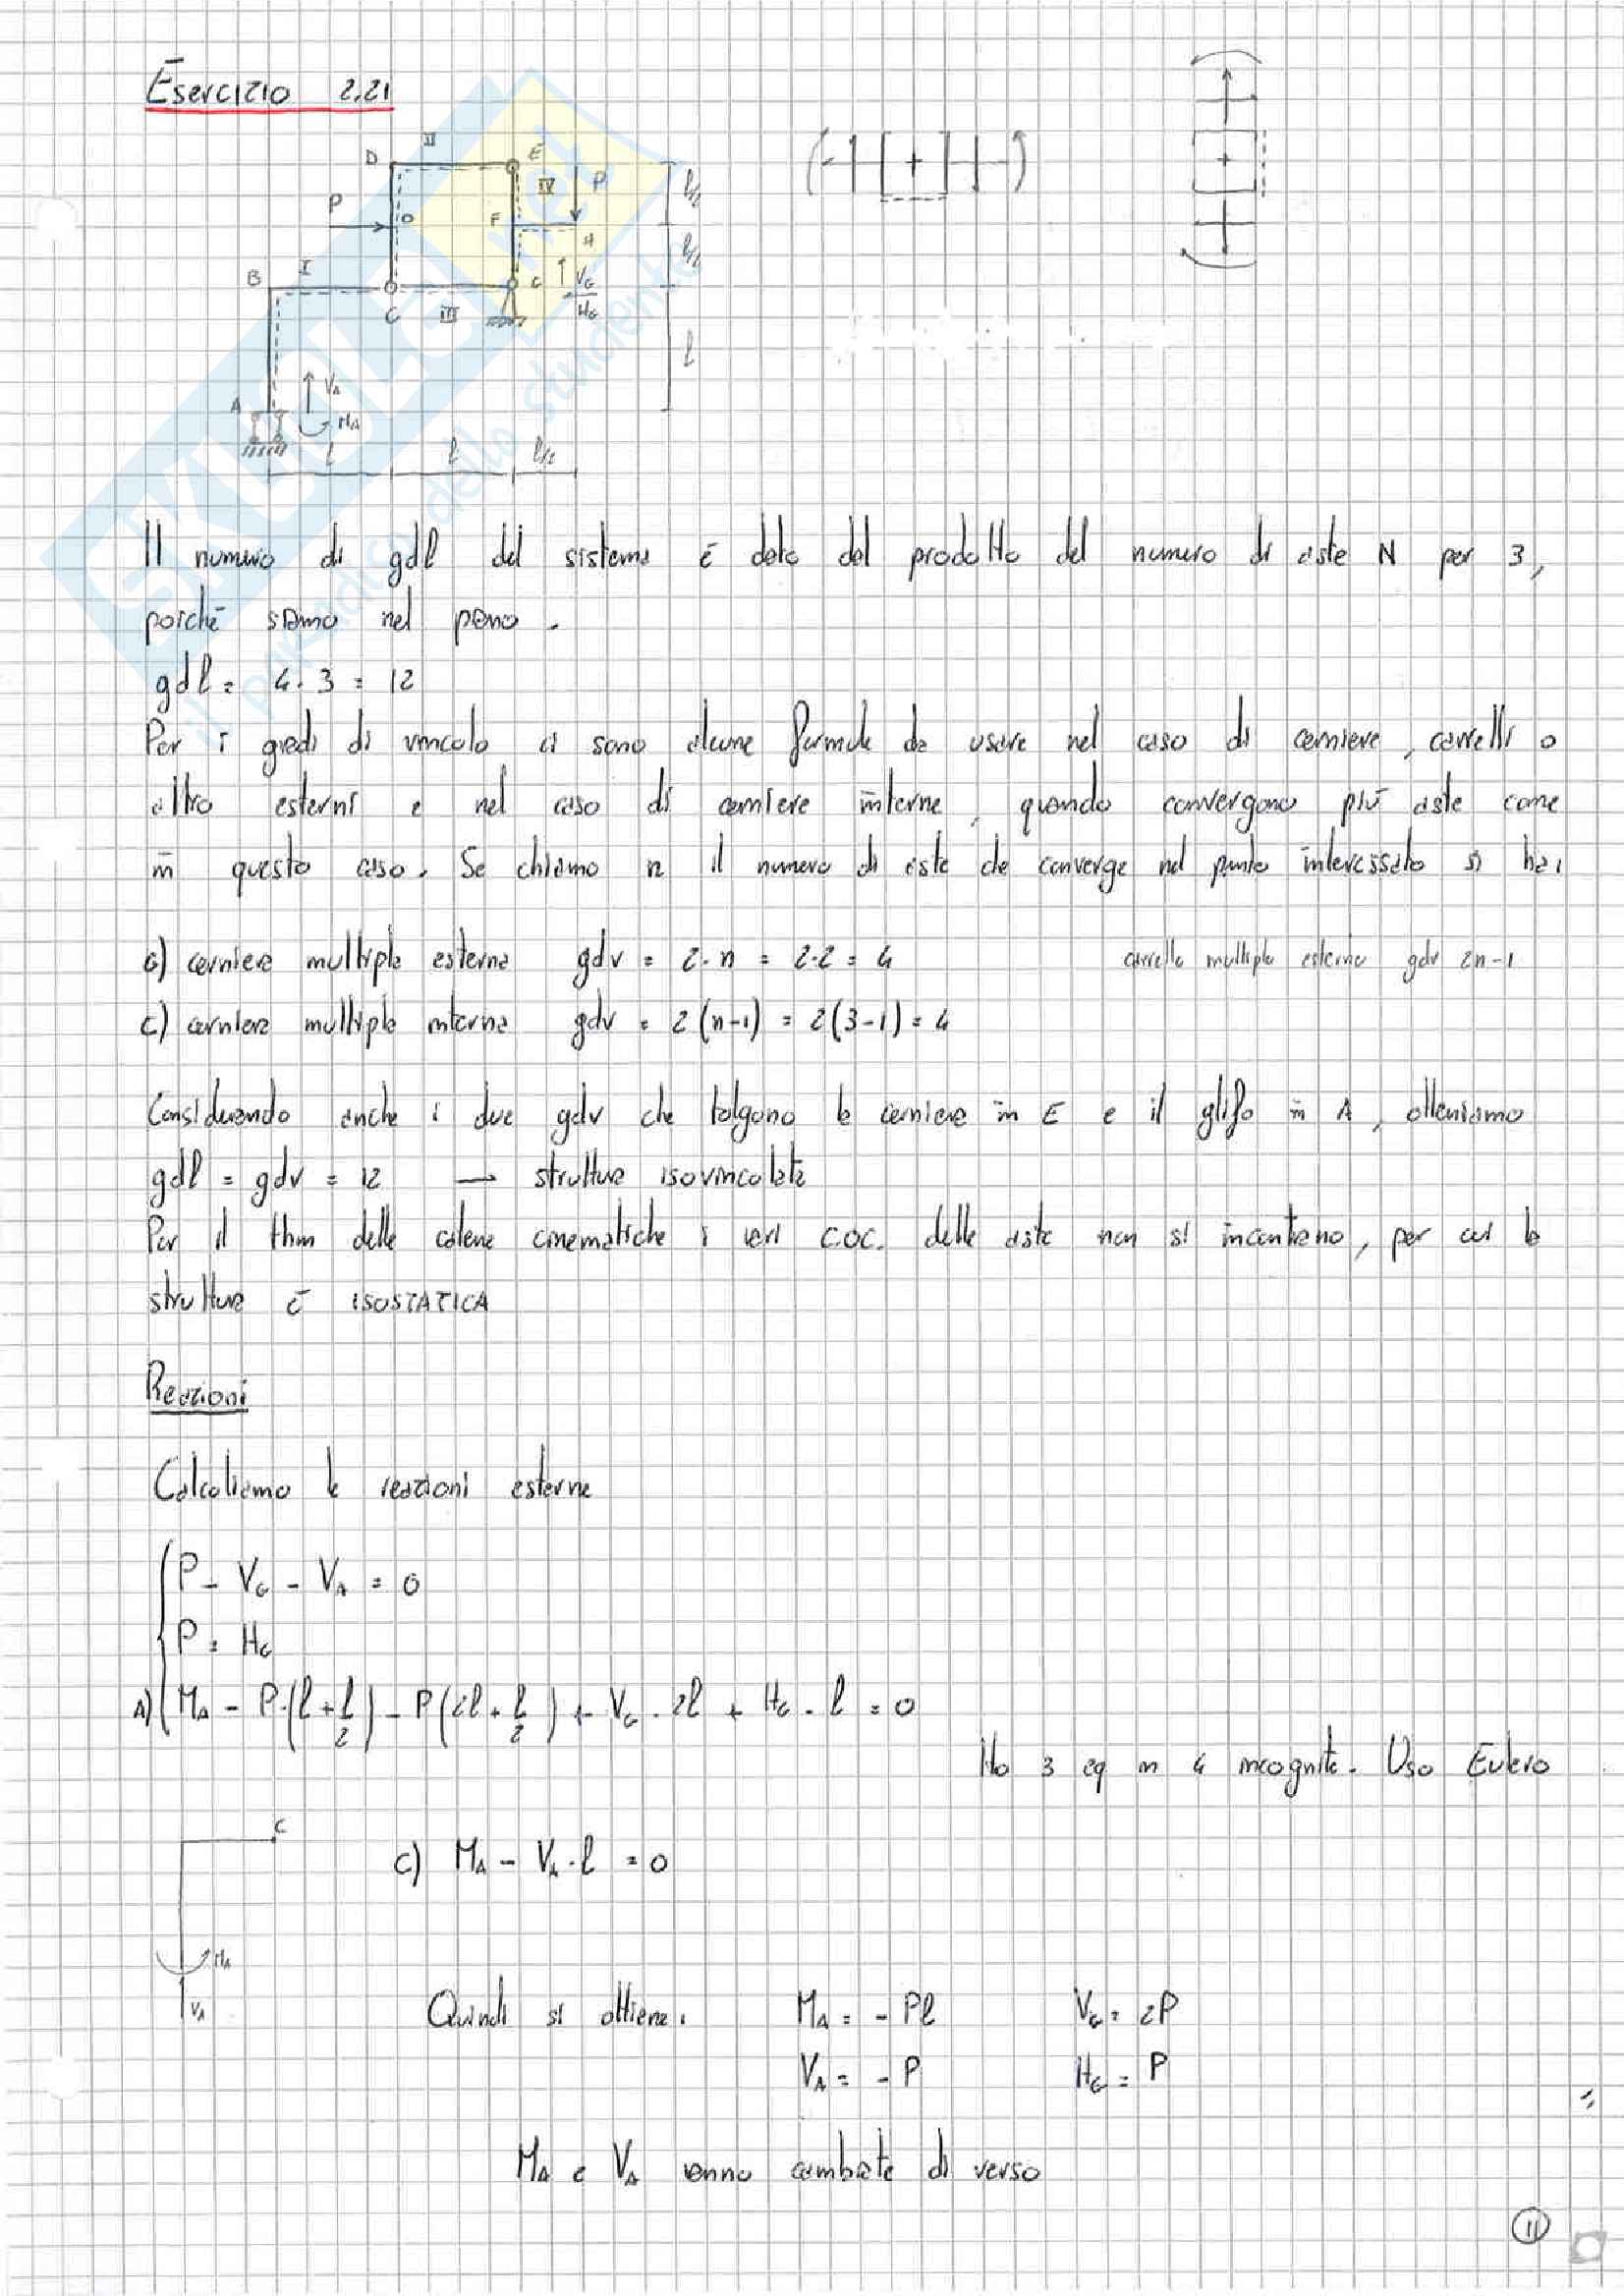 Esercizio 2.21
D II E
P O F IV P l/2
H l/2
B I C III G VG HG
l
A VA MA
l l l/2
Il numero di gdl del sistema è dato dal prodotto del numero di aste N per 3,
poichè siamo nel piano.
gdl = 4·3 = 12
Per i gradi di vincolo ci sono alcune formule da usare nel caso di cerniere, carrelli o
altro esterni e nel caso di cerniere interne, quando convergono più aste come
in questo caso. Se chiamo n il numero di aste che converge nel punto interessato si ha:
G) cerniera multipla esterna gdv = 2·n = 2·2 = 4 carrello multiplo esterno gdv 2n-1
C) cerniera multipla interna gdv = 2(n-1) = 2(3-1) = 4
Considerando anche i due gdv che tolgono la cerniera in E e il glifo in A, otteniamo
gdl = gdv = 12 → struttura isovincolata
Per il thm delle catene cinematiche i vari C.O.C. delle aste non si incontrano, per cui la
struttura è ISOSTATICA
Reazioni
Calcoliamo le reazioni esterne
P - VG - VA = 0
P = HG
A) MA - P·(l + l/2) - P(2l + l/2) + VG·2l + HG·l = 0
Ho 3 eq in 4 incognite. Uso Eulero
C
C) MA - VA·l = 0
MA
VA
Quindi si ottiene: MA = -Pl VG = 2P
VA = -P HG = P
MA e VA vanno cambiate di verso
11
SKUOLA.net
il paradiso dello studente